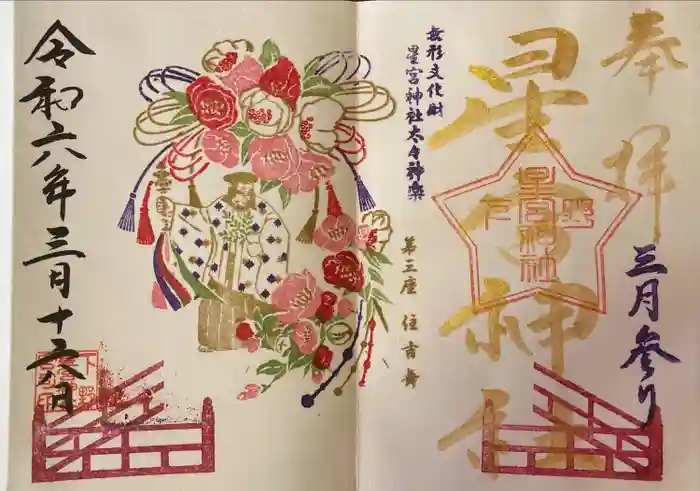 奉拝
三月参り
星宮神社
星宮神社
下野
無形文化財
星宮神社太々神楽
第三座 住吉舞
令和六年三月十六日